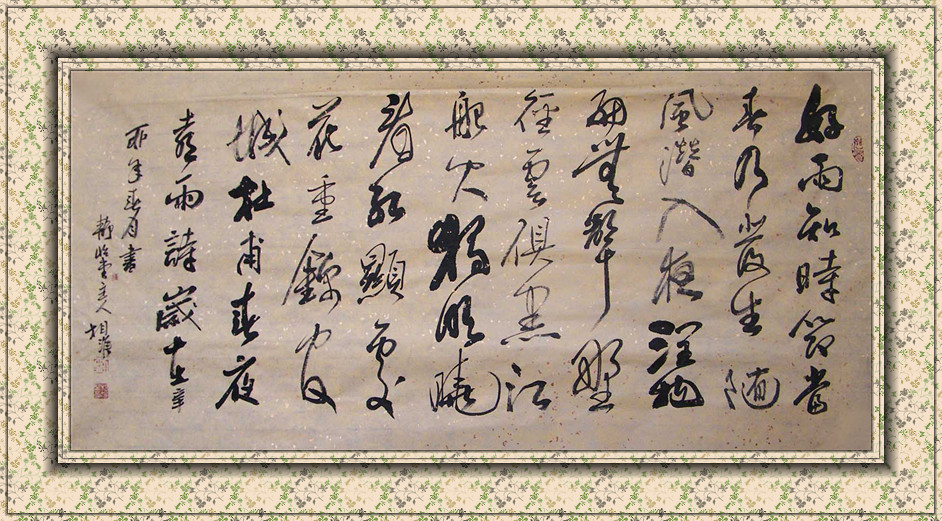 好雨知時節當
春乃發生隨
風潛入夜潤物
細無聲野
徑雲俱黑江
船火獨明曉
看紅顯處
花重錦官
城杜甫春夜
喜雨詩歲在辛
卯年春月書
堂主人